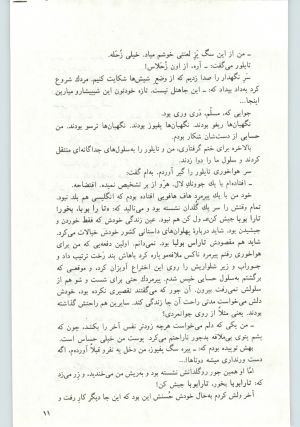 ـ من از این سگ پر لعنتی خوشم میاد. خیلی زحله.
تایلور می‌گفت: ـ آره. از اون زحلاس!
سر نگهدار را صدا زدیم که از وضع شپش‌ها شکایت کنیم. مردک شروع
کرد به‌داد بیداد که: ـ این جاهتل نیست. تازه خودتون این شپیشارو میارین
اینجا...
جوابی که، مسلّم، دری وری بود.
نگهبان‌ها ریغو بودند. نگهبان‌ها بفیوز بودند. نگهبان‌ها ترسو بودند. من
حسابی از دست‌شان شکار بودم.
بالاخره برای ختم گرفتاری، من و تایلور را به‌سلول‌های جداگانه‌ای منتقل
کردند و سلول ما را دود دادند.
سر هواخوری تایلور را گیر آوردم. به‌ام گفت:
ـ افتاده‌ام با یك جوونكِ لال. هرّو از بر تشخیص نمیده. افتضاحه.
خود من با یك پیرمرد هاف هافویی افتاده بودم که انگلیسی هم بلد نبود.
تمام وقتش را سر یك گلدان نشسته بود و می‌نالید که: «تا را پوبا، بخور!
تارا پوپا جیش کن!» ـ ول کن هم نبود. عین زندگی خودش که فقط خوردن و
جیشیدن بود. شاید دربارهٔ پهلوان‌های داستانی کشور خودش خیالات می‌کرد.
شاید هم مقصودش تاراس بولبا بود. نمی‌دانم. اولین دفعه‌یی که من برای
هواخوری رفتم پیرمرد ناکس ملافه‌مو پاره کرد باهاش بند رخت ترتیب داد و
جوراب و زیر شلواریش را روی این اختراع آویزان کرد، و موقعی که
برگشتم به‌سلول حسابی خیس شدم. پیرمردك حتی برای شست و شو هم از
سلولش نمی‌رفت بیرون. آن جور که می‌گفتند تقصیری نکرده بود، خودش
دلش می‌خواست مدتی راحت آن جا زندگی کند. سایرین هم راحتش گذاشته
بودند. یعنی مثلاً از روی جوانمردی؟
ـ من یکی که دلم می‌خواست هرچه زودتر نفس آخر را بکشد، چون که
پشم پتوی بی‌ملافه بدجور ناراحتم می‌کرد. پوست من خیلی حساس است.
بهش توپیده بودم که: ـ پیره سگ بفیوز، من دخل یه نفرو قبلاً آورده‌م، اگه
دست ورنداری میشه دوتاها!...
امّا او همین جور روگلدانش نشسته بود و به‌ریش من می‌خندید، و زر می‌زد
که: تاراپوبا بخور، تاراپوپا جیش کن!
آخر ولش کردم به‌حال خودش. حُسنش این بود که این جا دیگر کار رفت و
۱۱